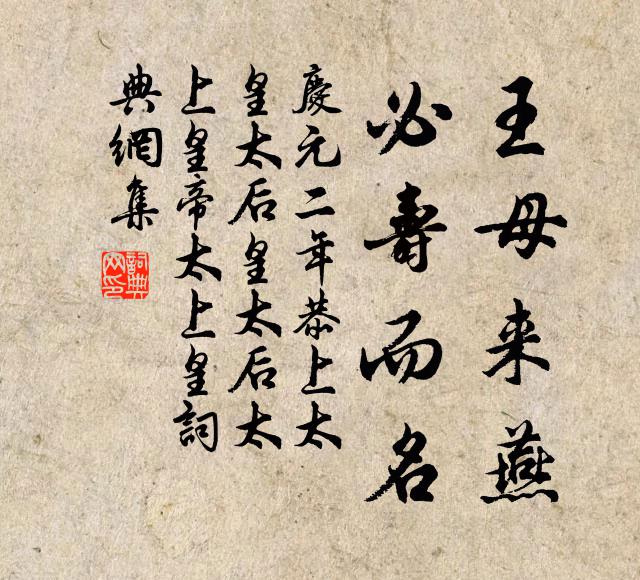 王母来燕
必壽而名
慶元二年恭上太
皇太后皇太后太
上皇帝太上皇詞
典網集
詞典網印